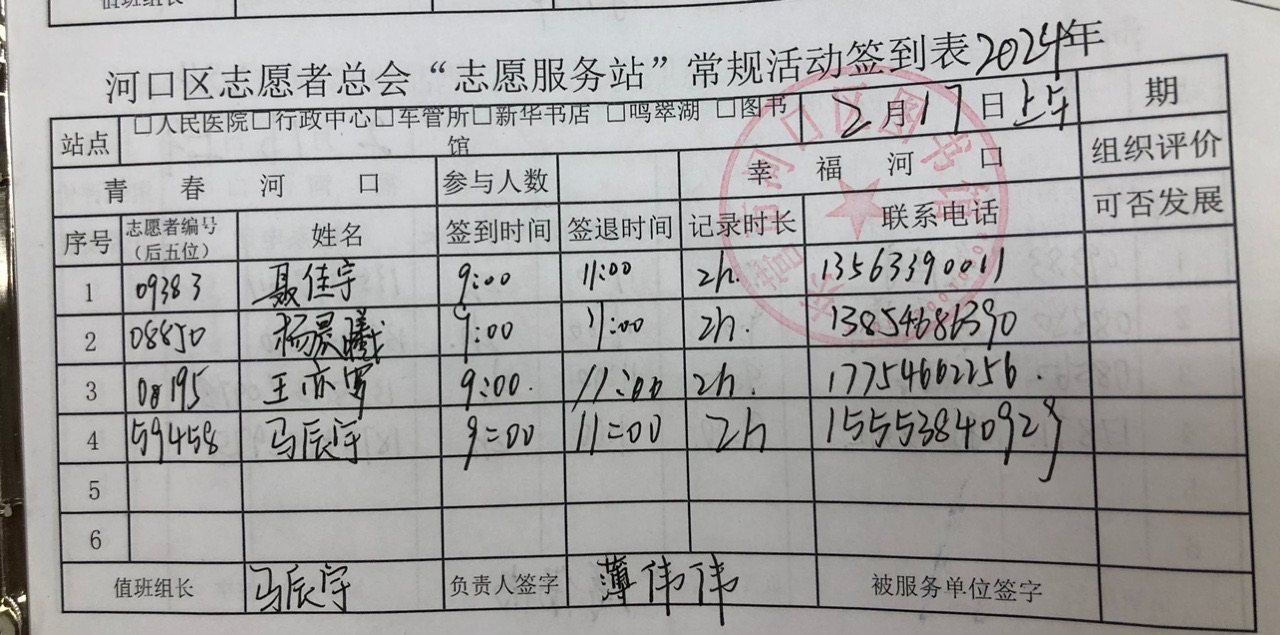 值班组长
河口区志愿者总会“志愿服务站”常规活动签到表2024年
站点 □人民医院□行政中心□车管所□新华书店 □鸣翠湖 □图书馆 2月17日上午 期
青春河口 参与人数 幸福河口 组织评价
序号 志愿者编号（后五位） 姓名 签到时间 签退时间 记录时长 联系电话 可否发展
1 09383 聂佳宇 9:00 11:00 2h. 13563390011
2 08850 杨晨曦 9:00 11:00 2h. 13854686390
3 08195 王亦 9:00. 11:00 2h. 17754602256.
4 59458 马辰宇 9:00 11:00 2h 1555384092
5
6
值班组长 马辰宇 负责人签字 薄伟伟 被服务单位签字